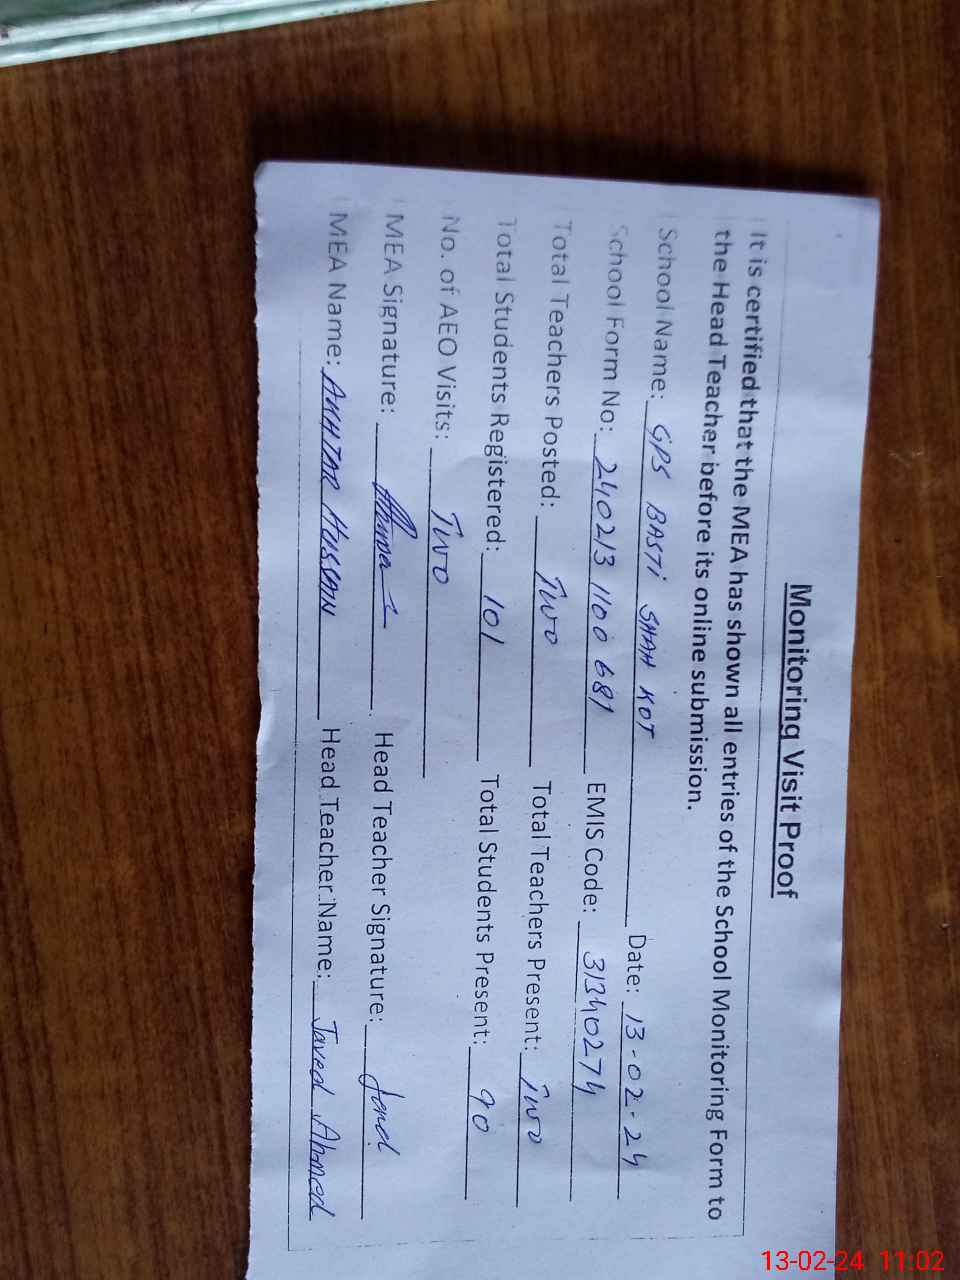 Monitoring Visit Proof
It is certified that the MEA has shown all entries of the School Monitoring Form to
the Head Teacher before its online submission.
School Name: GPS BASTi SHAH KOT Date: 13-02-24
School Form No: 240213 1100 681 EMIS Code: 31340274
Total Teachers Posted: Two Total Teachers Present: Two
Total Students Registered: 101 Total Students Present: 90
No. of AEO Visits: Two
MEA Signature: Head Teacher Signature:
MEA Name: AKHTAR HUSSAIN Head Teacher Name: Javed Ahmed
13-02-24 11:02